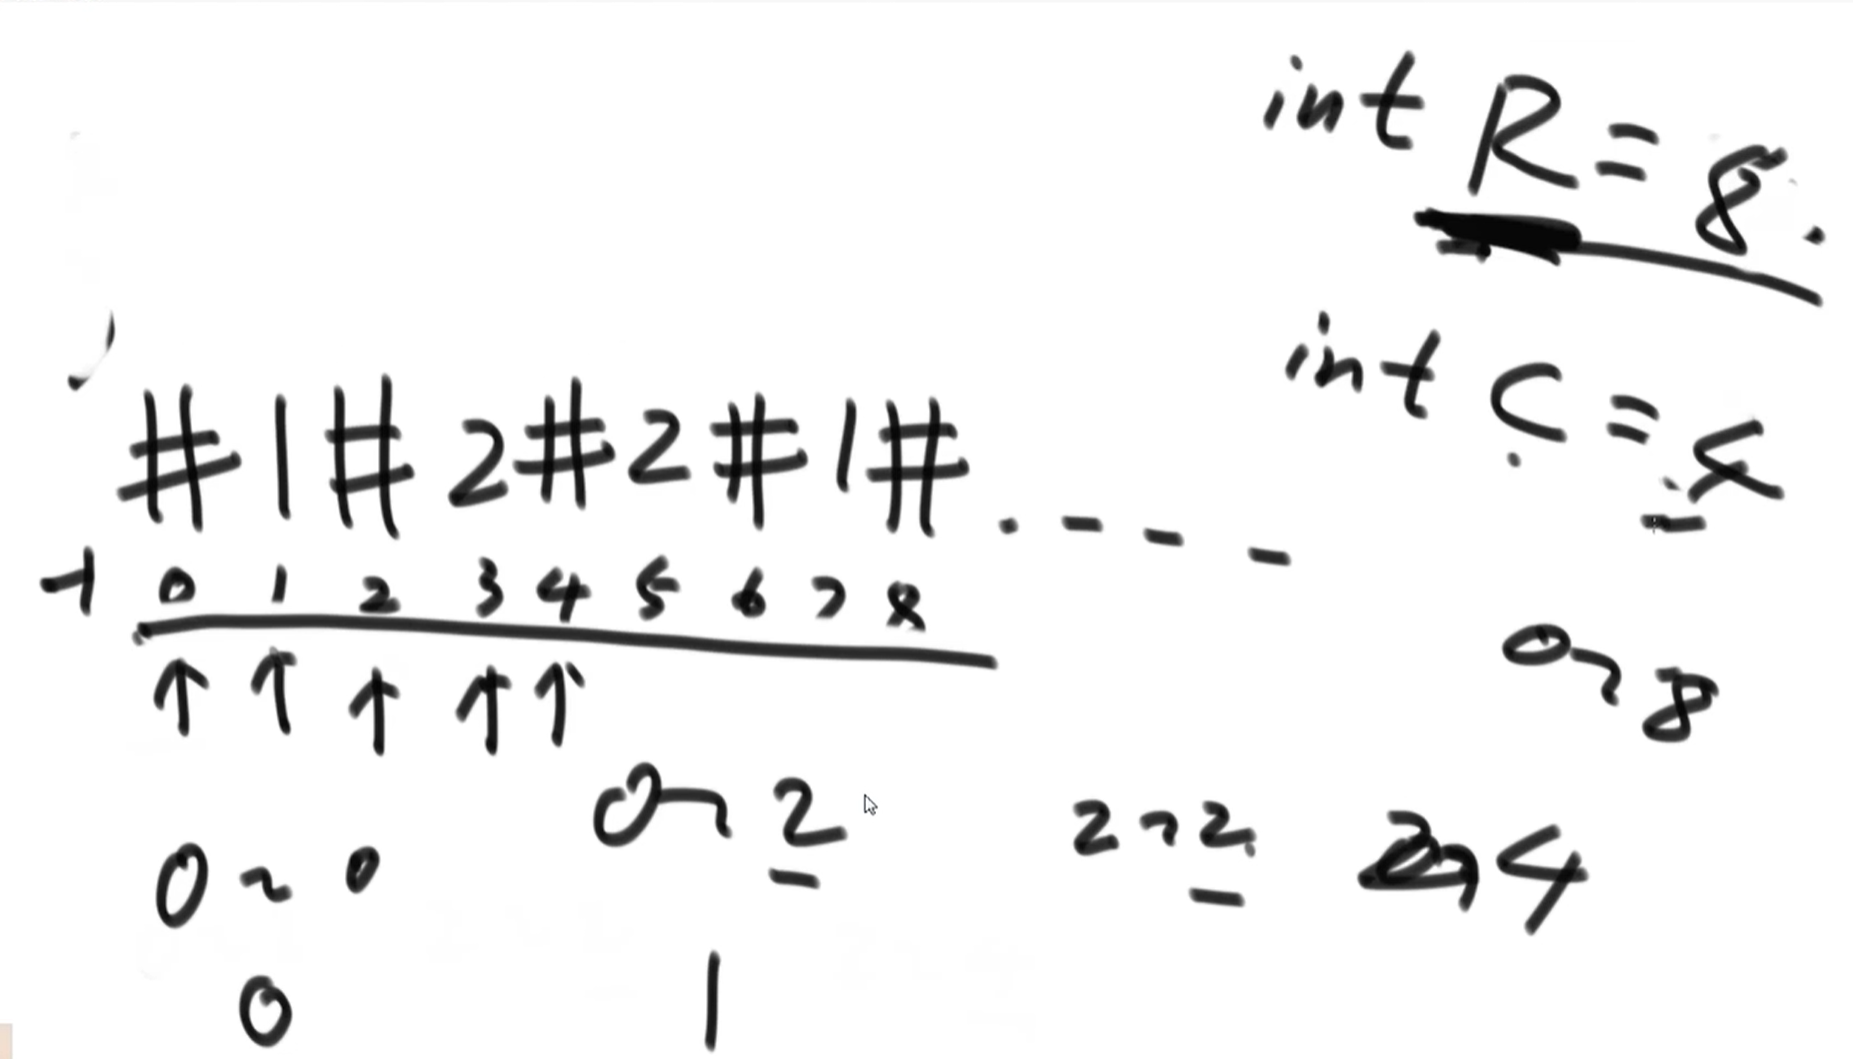 int R = 8.
int C = 4
#1#2#2#1#. - - -
-1 0 1 2 3 4 5 6 7 8
↑ ↑ ↑ ↑ ↑
0~8
0~2
2~2
2~4
0~0
0
1